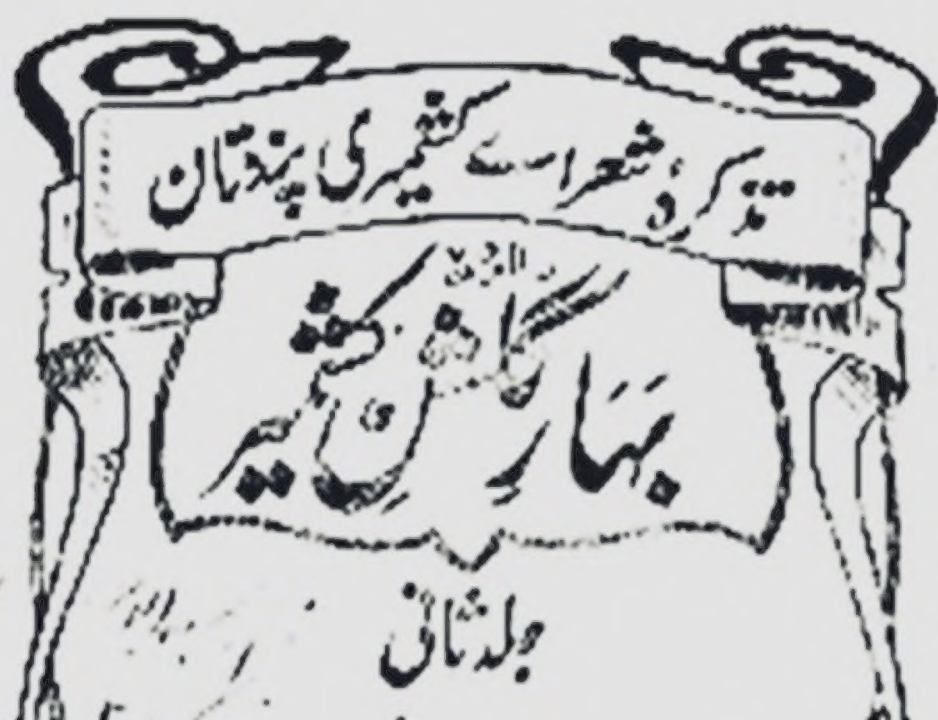 تذکرۂ شعرائے کشمیری پنڈتان
بہارِ گلشنِ کشمیر
جلد ثانی